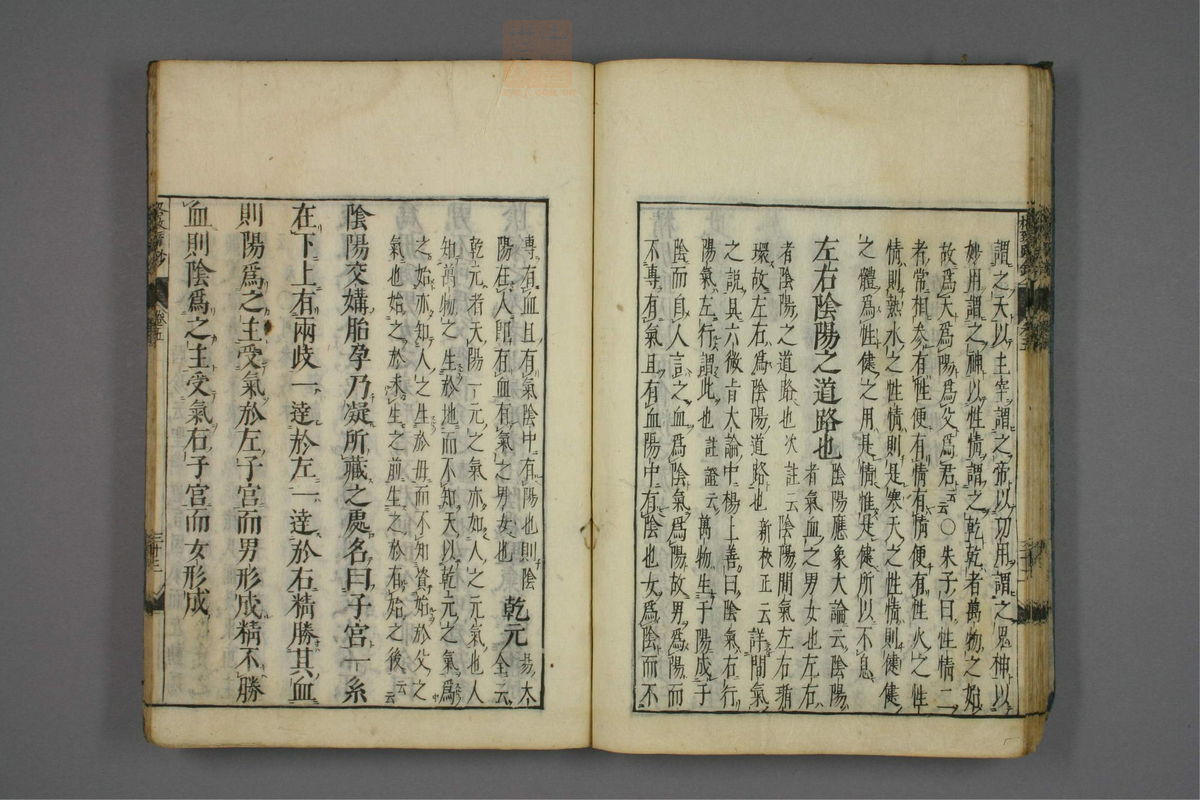 謂之天以主宰謂之帝以功用謂之鬼神以
妙用謂之神以性情謂之乾乾者萬物之始
故爲天爲陽爲父爲君云云〇朱子曰性情二
者常相参有性便有情有情便有性火之性
情則熱水之性情則是寒天之性情則健健
之體爲性健之用是情惟是健所以不息
左右陰陽之道路也
陰陽應象大論云陰陽
者氣血之男女也左右
者陰陽之道路也次註云陰陽間氣左右
環故左右爲陰陽道路也新校正云詳間氣
之説具六微旨大論中楊上善曰陰氣右行
陽氣左行謂此也註證云萬物生于陽成于
陰而自人言之血爲陰氣爲陽故男爲陽而
不專有氣且有血陽中有陰也女爲陰而不
專有血且有氣陰中有陽也則陰
陽在人即有血有氣之男女也
乾元
易大
全云
乾元者天陽一元之氣亦如人之元氣也人
知萬物之生於地而不知天以乾元之氣爲
之始亦知人之生於毋而不知資始於父之
氣也始之於未生之前生之於有始之後云云
陰陽交媾胎孕乃凝所藏之處名曰子宮一系
在下上有兩歧一達於左一達於右精勝其血
則陽爲之主受氣於左子宮而男形成精不勝
血則陰爲之主受氣右子宮而女形成
卷五
三十三